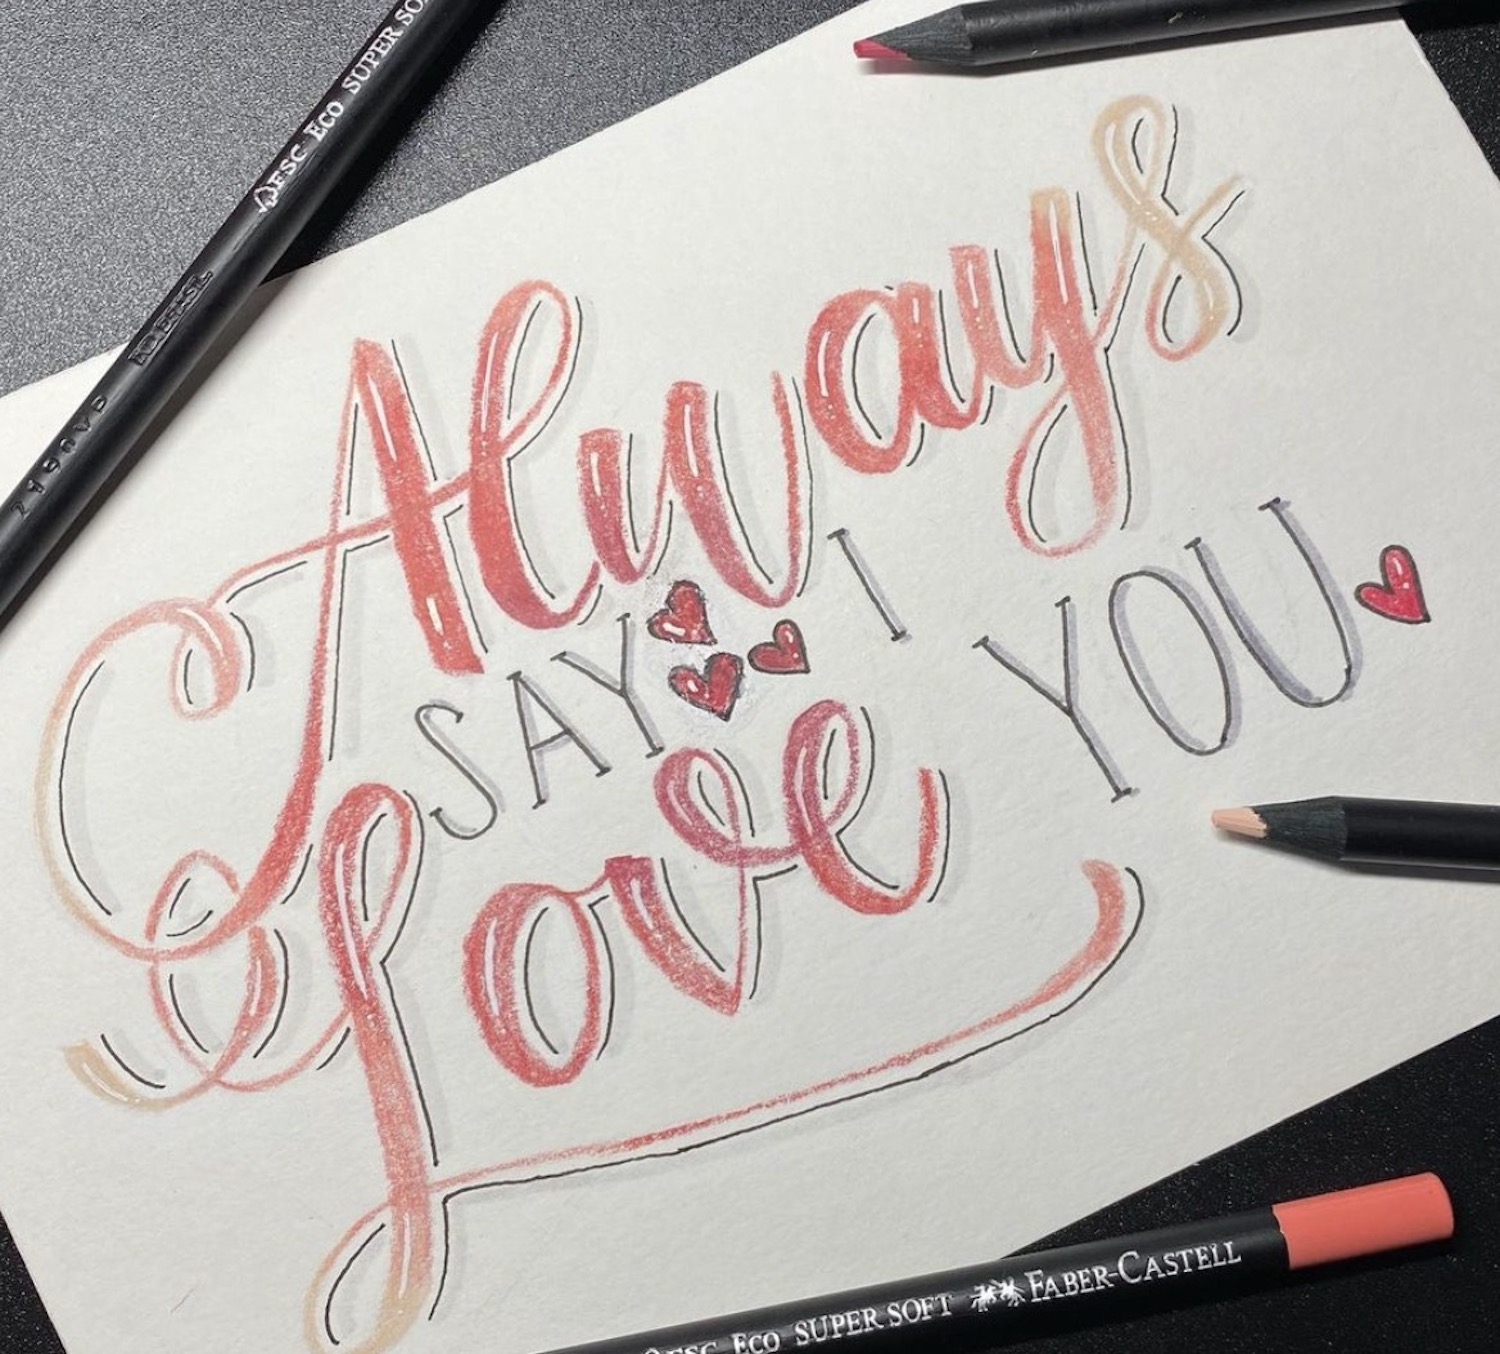 Always
SAY I
Love YOU
FSC ECO SUPER SO
2190VP
FSC ECO SUPER SOFT FABER-CASTELL